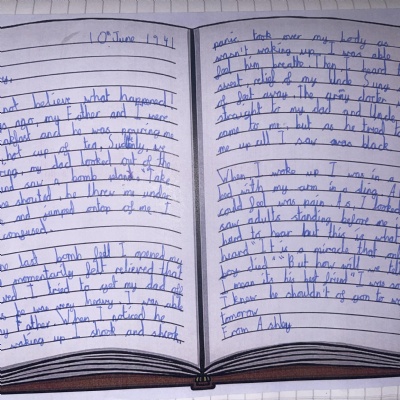 10th June 1941
not believe what happened I
ago my Father and I were
and he was pouring me
hot cup of tea, Suddenly, we
my dad looked out of the
and saw a bomb "Take
he shouted he threw me under
and jumped ontop of me. I
confused.
last bomb fell I opened my
momentarily felt relieved that
I tried to get my dad off
he was very heavy I was able
my Father. When I noticed he
waking up I shook and shook
panic took over my body as
wasn't waking up. I was able
feel him breathe. Then I heard
sweet relief of my Uncle
of feet away. The grey doctor
straight to my dad and Uncle
came to me but as he tried to
me up all I saw was black
When I woke up I was in a
bed with my arm in a sling. All
could feel was pain. As I looked
saw adults standing before me
hard to hear but this is what
heard "It is a miracle that only
boy died" "But how will we tell
I mean its his best friend" I was so
I knew he shouldn't of gon to
tomorrow
From Ashley